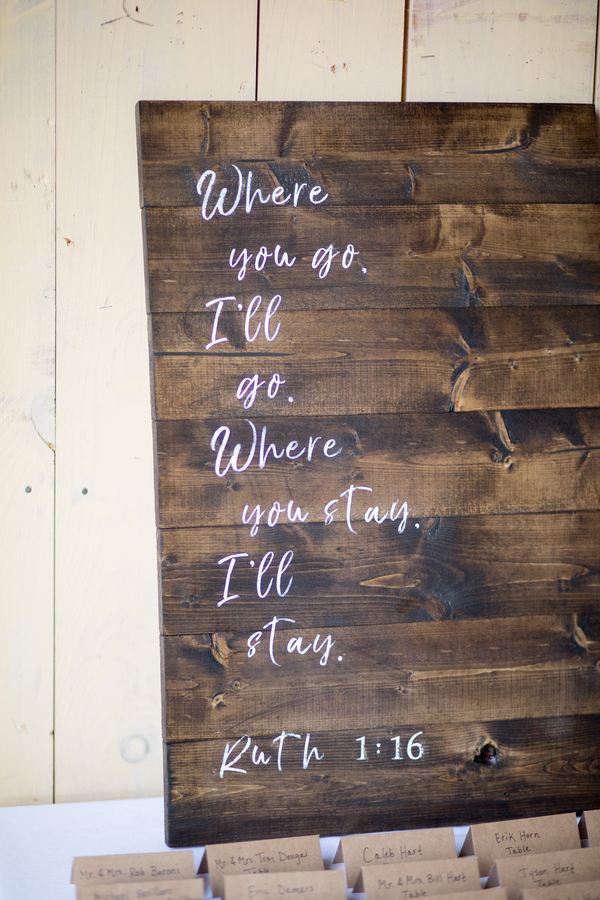 Where
you go,
I'll
go.
Where
you stay,
I'll
stay.
Ruth 1:16
Erik Horn
Table
Caleb Hart
Mr. & Mrs. Tom Dougal
Table
Mr. & Mrs. Rob Barons
Tyson Hart
Table
Mr. & Mrs. Bill Hart
Table
Eric Demers
Michael